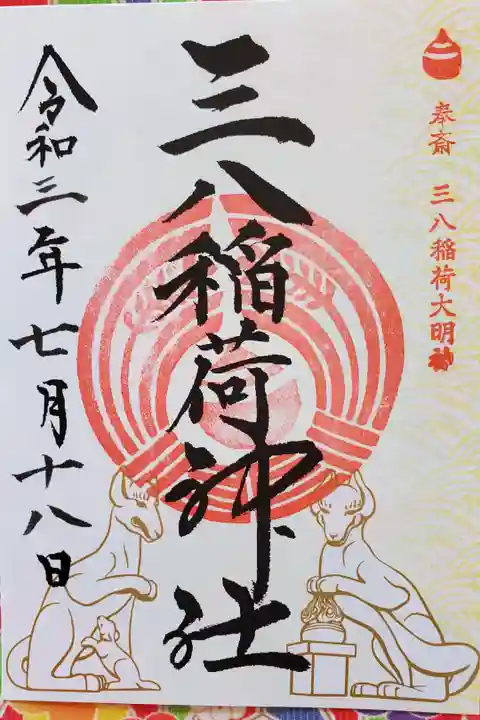 奉斎 三八稲荷大明神
三八稲荷神社
令和三年七月十八日